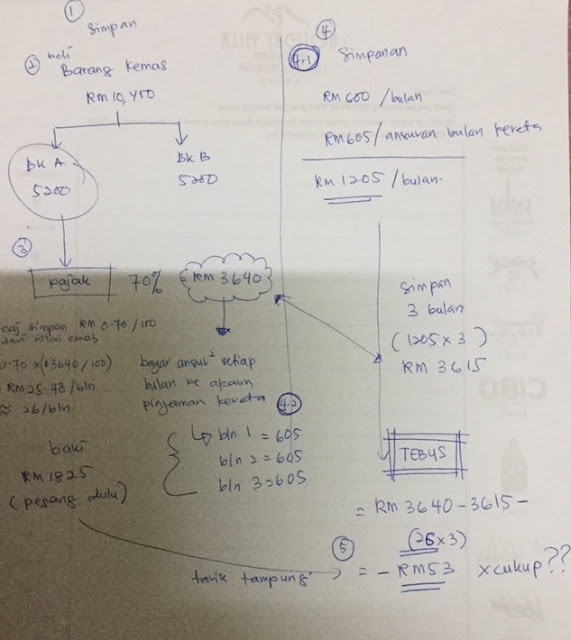 ①
Simpan
② beli
Barang kemas
RM 10,400
BK A
5200
BK B
5200
③
pajak 70% RM 3640
caj simpan RM 0.70/100
dari nilai emas
0.70 x($3640/100)
RM 25.48/bln
≈ 26/bln
baki
RM 1825
(pegang dulu)
bayar ansur² setiap
bulan ke akaun
pinjaman kereta 4.2
↳ bln 1 = 605
bln 2 = 605
bln 3 = 605
④
4.1 Simpanan
RM 600 /bulan
RM 605/ansuran bulan kereta
RM 1205 /bulan.
simpan
3 bulan
(1205 x 3)
RM 3615
TEBUS
= RM 3640 - 3615 -
(26 x 3)
⑤ = - RM 53 x cukup??
tarik tampung
CIBO